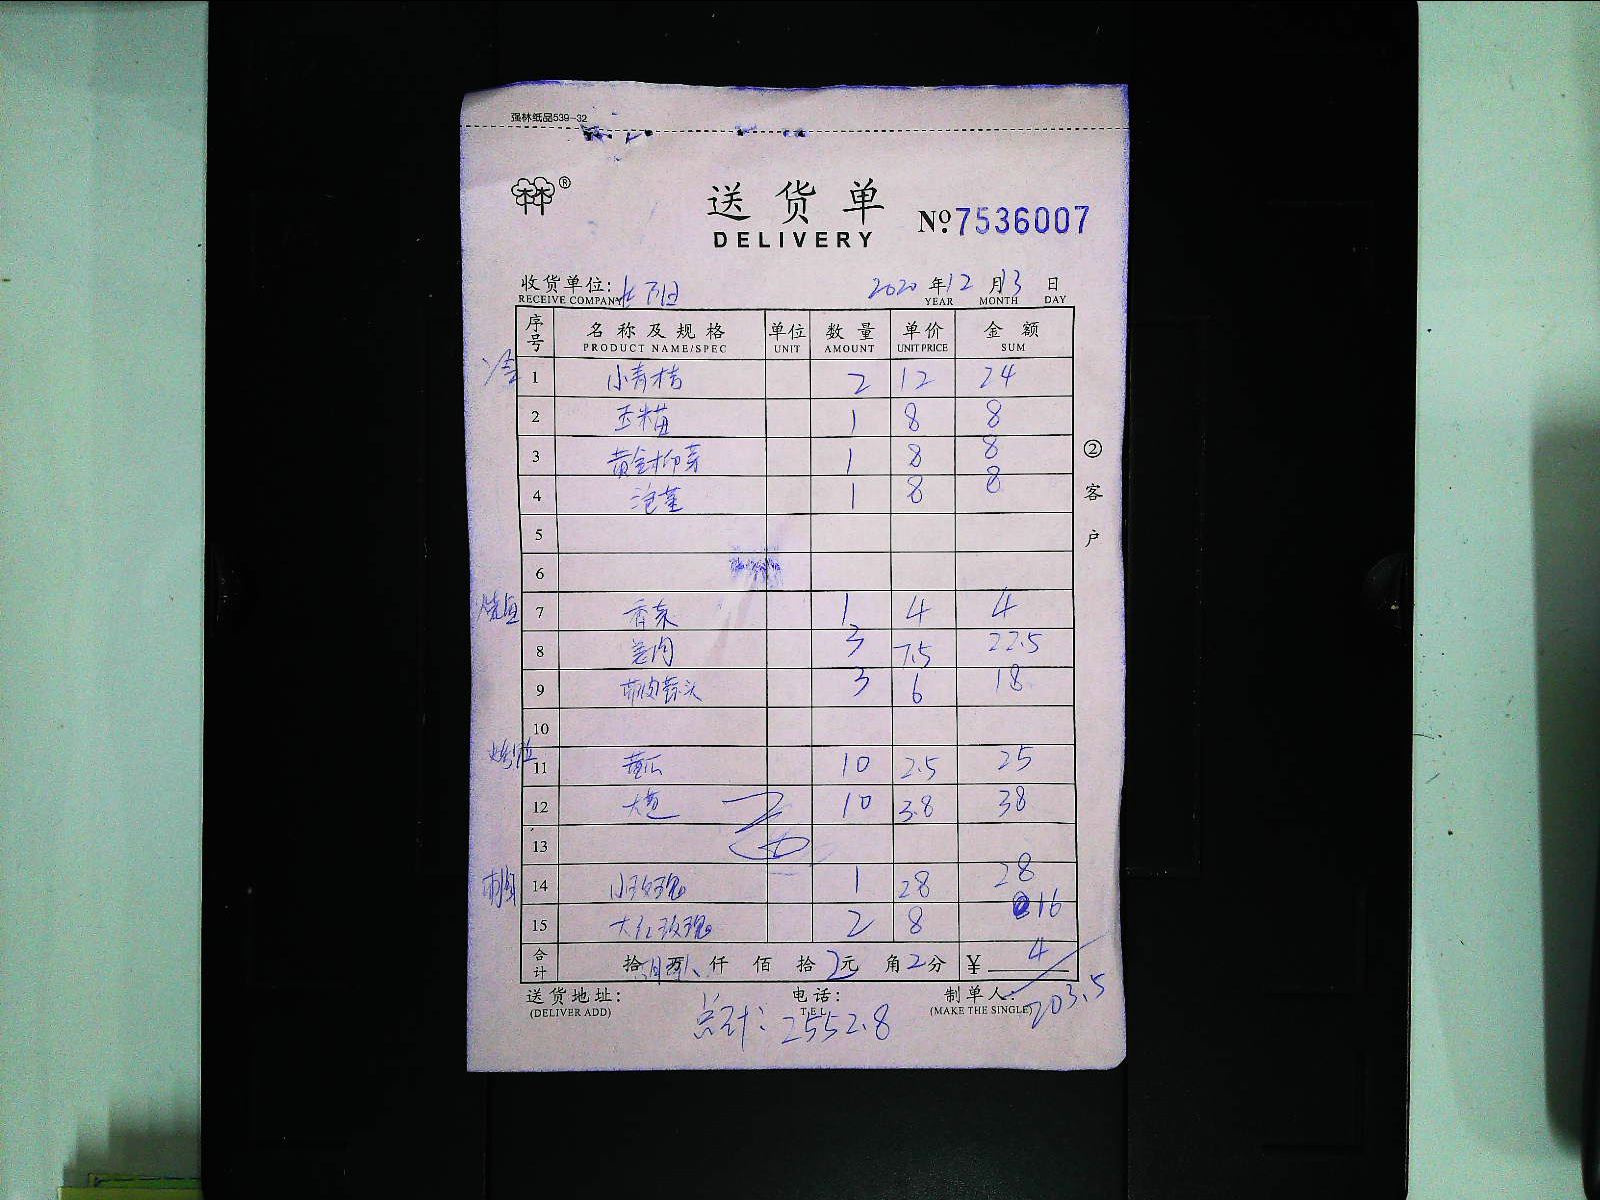 强林纸品539-32
送货单
DELIVERY
№7536007
收货单位:
RECEIVE COMPANY
2020年12月13日
YEAR MONTH DAY
序号 名称及规格 单位 数量 单价 金额
PRODUCT NAME/SPEC UNIT AMOUNT UNIT PRICE SUM
1 小青桔 2 12 24
2 玉米苗 1 8 8
3 黄金柳芽 1 8 8
4 1 8 8
5
6
7 香菜 1 4 4
8 姜肉 3 7.5 22.5
9 3 6 18
10
11 黄瓜 10 2.5 25
12 大葱 10 3.8 38
13
14 小玫瑰 1 28 28
15 大红玫瑰 2 8 16
合计 拾 万 仟 佰 拾 元 角 2 分 ¥ 4
203.5
送货地址:
(DELIVER ADD)
电话:
TEL
制单人:
(MAKE THE SINGLE)
总计: 2552.8
②客户